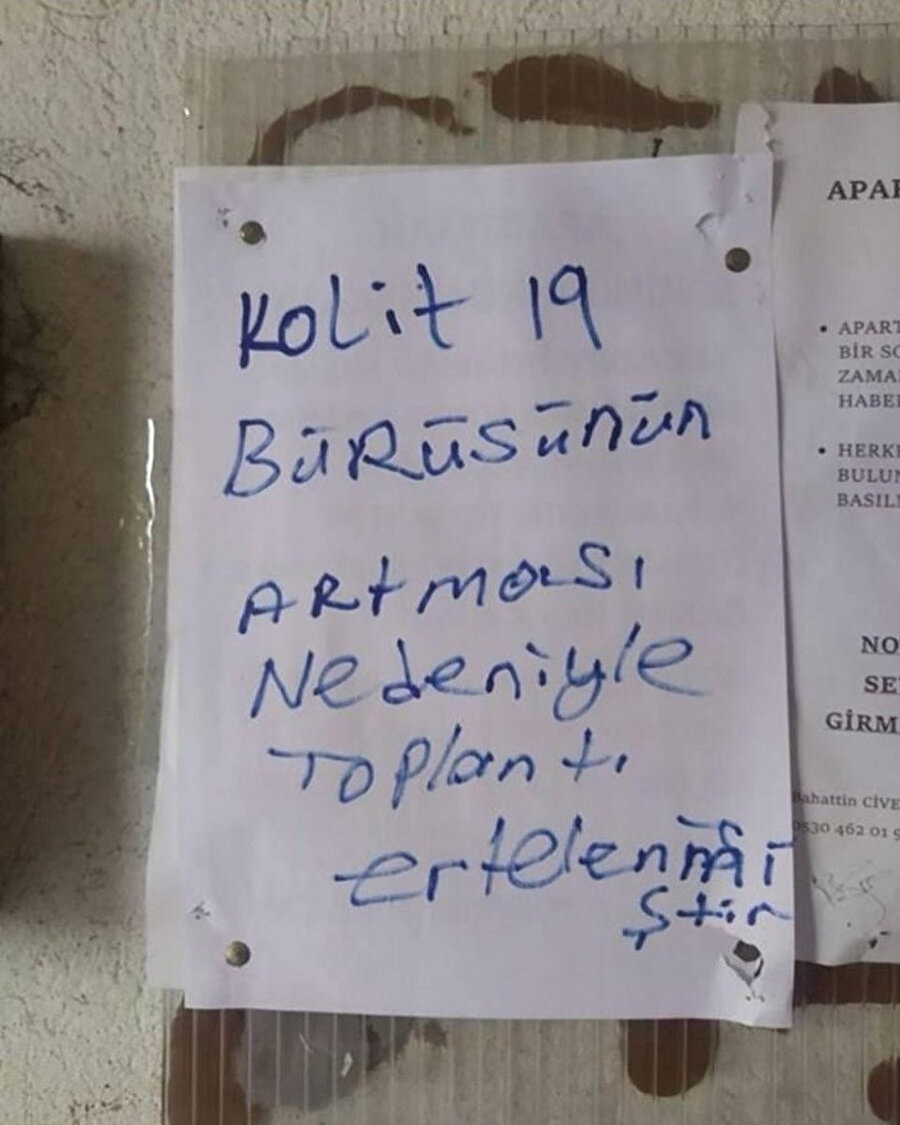 Kolit 19
BÜRÜSÜNÜN
ARtması
Nedeniyle
Toplantı
ertelenmi
ştir
APAR
• APART
BİR SO
ZAMAN
HABER
• HERKE
BULUN
BASILM
NO
SE
GİRM
Bahattin CİVE
0530 462 01 9